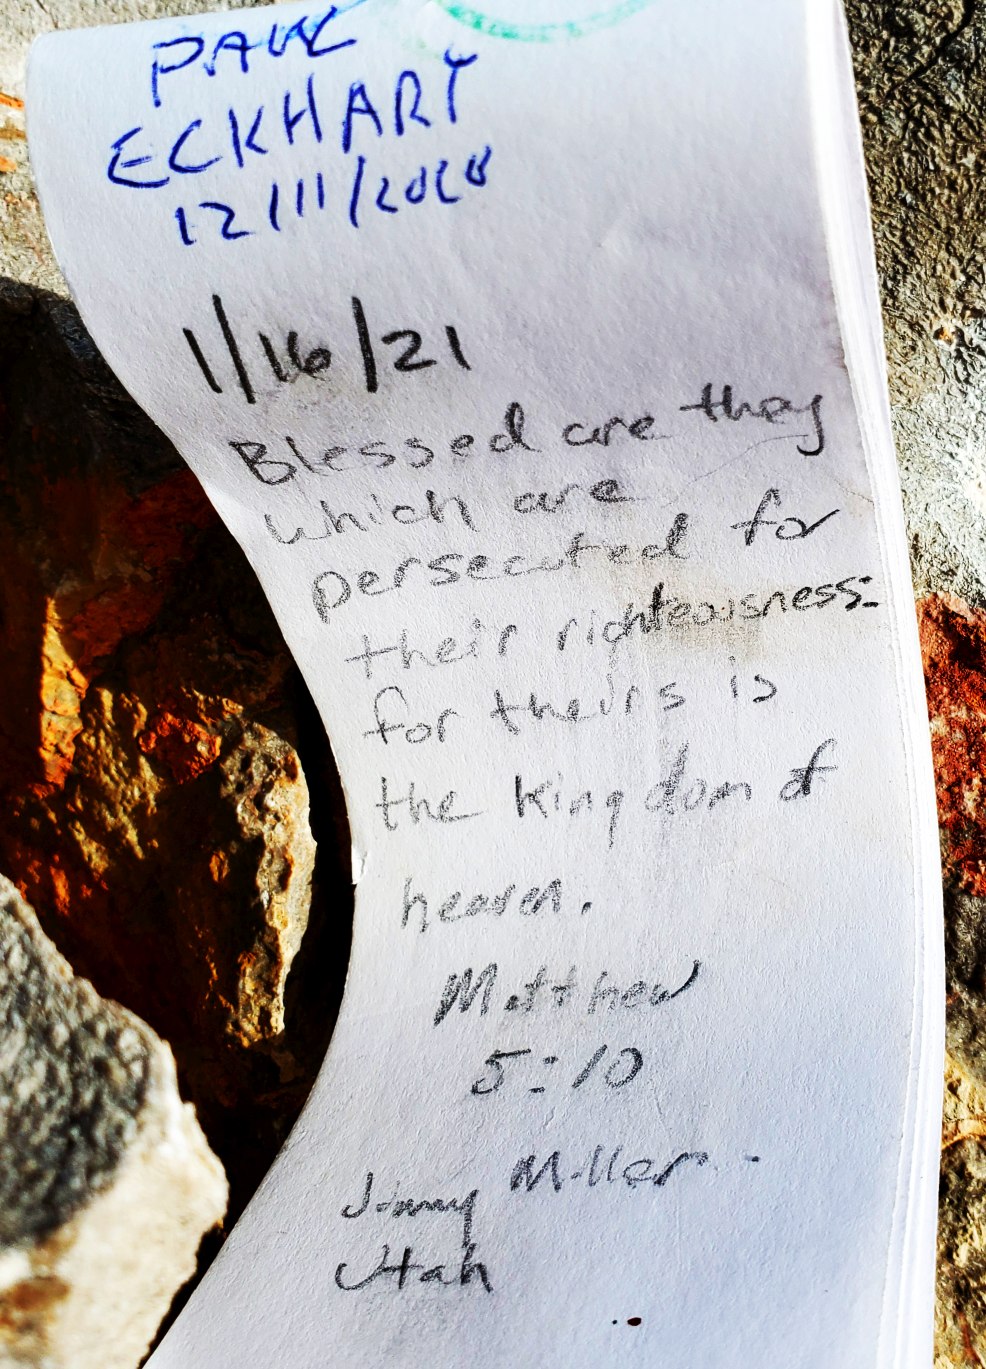 PAUL
ECKHART
12/11/2020
1/16/21
Blessed are they
which are
persecuted for
their righteousness:
for theirs is
the kingdom of
heaven.
Matthew
5:10
Jimmy Miller
Utah